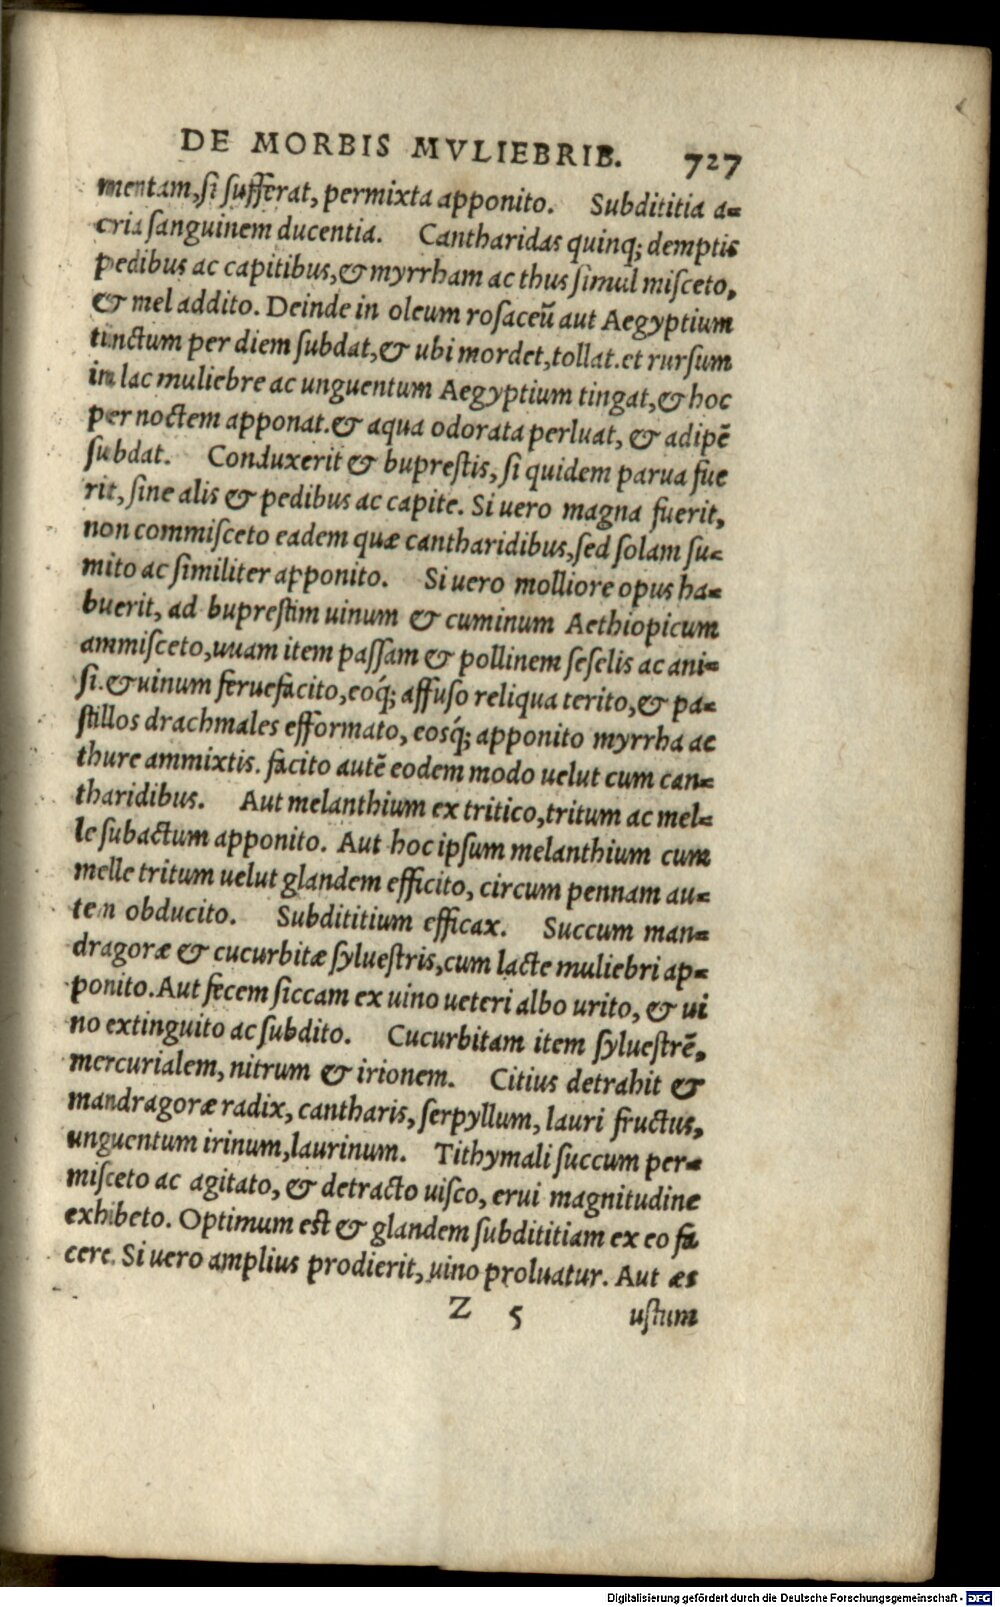 DE MORBIS MVLIEBRIB. 727
mentam, ſi ſufferat, permixta apponito. Subdititia a=
cria ſanguinem ducentia. Cantharidas quinq; demptis
pedibus ac capitibus, & myrrham ac thus ſimul miſceto,
& mel addito. Deinde in oleum roſaceũ aut Aegyptium
tinctum per diem ſubdat, & ubi mordet, tollat. et rurſum
in lac muliebre ac unguentum Aegyptium tingat, & hoc
per noctem apponat. & aqua odorata perluat, & adipẽ
ſubdat. Conduxerit & bupreſtis, ſi quidem parua fue
rit, ſine alis & pedibus ac capite. Si uero magna fuerit,
non commiſceto eadem quæ cantharidibus, ſed ſolam ſu=
mito ac ſimiliter apponito. Si uero molliore opus ha=
buerit, ad bupreſtim uinum & cuminum Aethiopicum
ammiſceto, uuam item paſſam & pollinem ſeſelis ac ani=
ſi. & uinum feruefacito, eoq́; affuſo reliqua terito, & pa=
ſtillos drachmales efformato, eosq́; apponito myrrha ac
thure ammixtis. facito autẽ eodem modo uelut cum can=
tharidibus. Aut melanthium ex tritico, tritum ac mel=
le ſubactum apponito. Aut hoc ipſum melanthium cum
melle tritum uelut glandem efficito, circum pennam au=
tem obducito. Subdititium efficax. Succum man=
dragoræ & cucurbitæ ſylueſtris, cum lacte muliebri ap=
ponito. Aut fecem ſiccam ex uino ueteri albo urito, & ui
no extinguito ac ſubdito. Cucurbitam item ſylueſtrẽ,
mercurialem, nitrum & irionem. Citius detrahit &
mandragoræ radix, cantharis, ſerpyllum, lauri fructus,
unguentum irinum, laurinum. Tithymali ſuccum per=
miſceto ac agitato, & detracto uiſco, erui magnitudine
exhibeto. Optimum est & glandem ſubdititiam ex eo fa
cere. Si uero amplius prodierit, uino proluatur. Aut æs
Z 5 uſtum
Digitalisierung gefördert durch die Deutsche Forschungsgemeinschaft - DFG